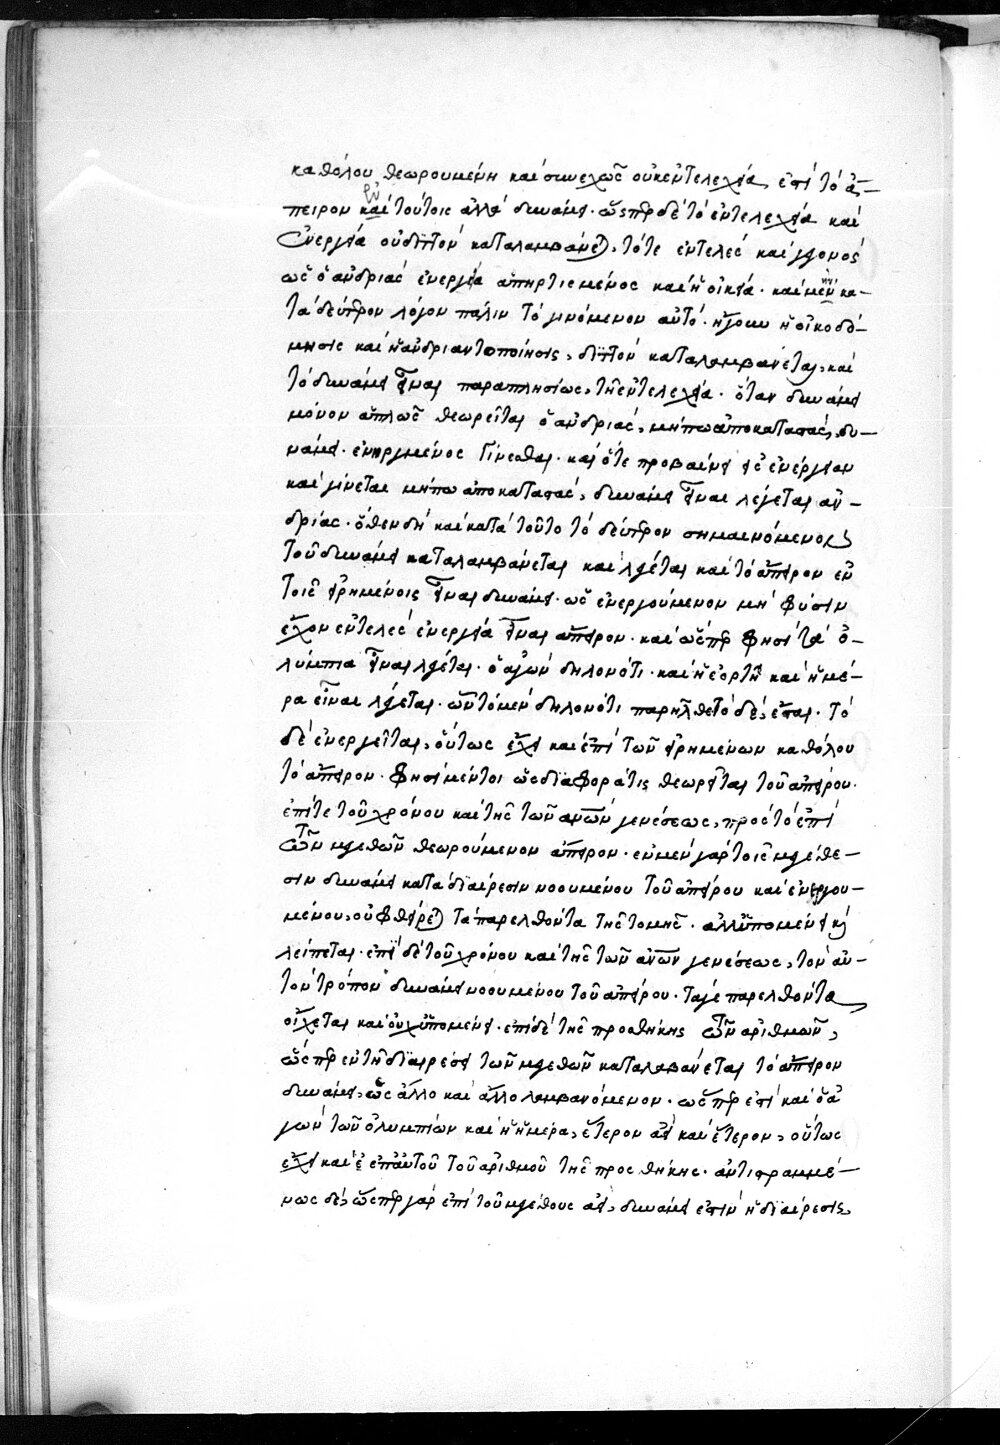 καθόλου θεωρουμένη καὶ συνεχῶς οὐκ ἐντελεχεία, ἐστὶ τὸ ἄ-
πειρον καὶ τούτοις ἀλλὰ δυνάμει· ὥσπερ δὲ τὸ ἐντελεχεία καὶ
ἐνεργεία οὐ διττὸν καταλαμβάνεται, τό τε ἐντελὲς καὶ γεγονὸς
ὡς ὁ ἀνδριὰς ἐνεργεία ἀπηρτισμένος καὶ ἡ οἰκία· καὶ μὲν κα-
τὰ δεύτερον λόγον πάλιν τὸ γινόμενον αὐτό· ἤγουν ἡ οἰκοδό-
μησις καὶ ἡ ἀνδριαντοποίησις, διττὸν καταλαμβάνεται, καὶ
τὸ δυνάμει εἶναι παραπλησίως, τῇ ἐντελεχεία· ὅταν δυνάμει
μόνον ἁπλῶς θεωρεῖται ὁ ἀνδριὰς, μήπω ἀποκαταστὰς, δυ-
νάμει· ἐνηργμένος γίνεσθαι· καὶ ὅτε προβαίνει εἰς ἐνέργειαν
καὶ γίνεται μήπω ἀποκαταστὰς, δυνάμει εἶναι λέγεται ἀν-
δριάς· ὅθεν δὴ καὶ κατὰ τοῦτο τὸ δεύτερον σημαινόμενον
τοῦ δυνάμει καταλαμβάνεται καὶ λέγεται καὶ τὸ ἄπειρον ἐν
τοῖς εἰρημένοις εἶναι δυνάμει· ὡς ἐνεργούμενον μὴ φύσιν
ἔχον ἐντελὲς ἐνεργεία εἶναι ἄπειρον· καὶ ὥσπερ φησὶ τὰ ὀ-
λύμπια εἶναι λέγεται· ὁ ἀγὼν δηλονότι· καὶ ἡ ἑορτὴ καὶ ἡ ἡμέ-
ρα εἶναι λέγεται· ὧν τὸ μὲν δηλονότι παρῆλθε τὸ δὲ, ἔσται· τὸ
δὲ ἐνεργεῖται, οὕτως ἔχει καὶ ἐπὶ τῶν εἰρημένων καθόλου
τὸ ἄπειρον· φησὶ μέντοι ὡς διαφορά τις θεωρεῖται τοῦ ἀπείρου·
ἐπί τε τοῦ χρόνου καὶ τῆς τῶν ἀνων γενέσεως, πρὸς τὸ ἐπὶ
τῶν μεγεθῶν θεωρούμενον ἄπειρον· ἐν μὲν γὰρ τοῖς μεγέθε-
σιν δυνάμει κατὰ διαίρεσιν νοουμένου τοῦ ἀπείρου καὶ ἐνεργου-
μένου, οὐ φθείρεται τὰ παρελθόντα τῆς τομῆς· ἀλλ' ὑπομένει καὶ
λείπεται· ἐπὶ δὲ τοῦ χρόνου καὶ τῆς τῶν ἀνων γενέσεως, τὸν αὐ-
τὸν τρόπον δυνάμει νοουμένου τοῦ ἀπείρου· τά γε παρελθόντα
οἴχεται καὶ οὐχ ὑπομένει· ἐπὶ δὲ τῆς προσθήκης τῶν ἀριθμῶν,
ὥσπερ ἐν τῇ διαιρέσει τῶν μεγεθῶν καταλαμβάνεται τὸ ἄπειρον
δυνάμει, ὡς ἄλλο καὶ ἄλλο λαμβανόμενον· ὥσπερ ἐστὶ καὶ ὁ ἀ
γὼν τῶν ὀλυμπίων καὶ ἡ ἡμέρα, ἕτερον ἀεὶ καὶ ἕτερον, οὕτως
ἔχει καὶ ἐπ' αὐτοῦ τοῦ ἀριθμοῦ τῆς προσθήκης· ἀντιστραμμέ-
νως δὲ, ὥσπερ γὰρ ἐπὶ τοῦ μεγέθους ἀεὶ, δυνάμει ἐστὶν ἡ διαίρεσις,